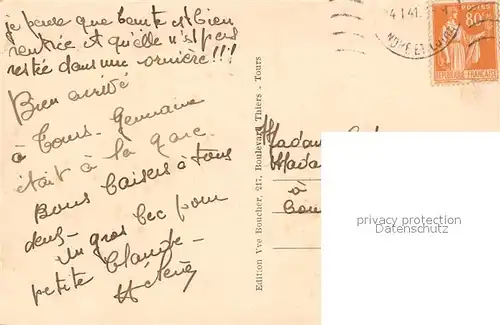 je pense que tante est bien
rentrée et qu'elle n'est pas
restée dans une ornière!!!
Bien arrivé
à Tours. Germaine
était à la gare.
Bons baisers à tous
deux.
un gros bec pour
petite Claude
Hélène
Edition Vve Boucher, 217, Boulevard Thiers - Tours
4 I 41
POSTES
80
REPUBLIQUE FRANÇAISE
Madame
Mada
à
privacy protection
Datenschutz